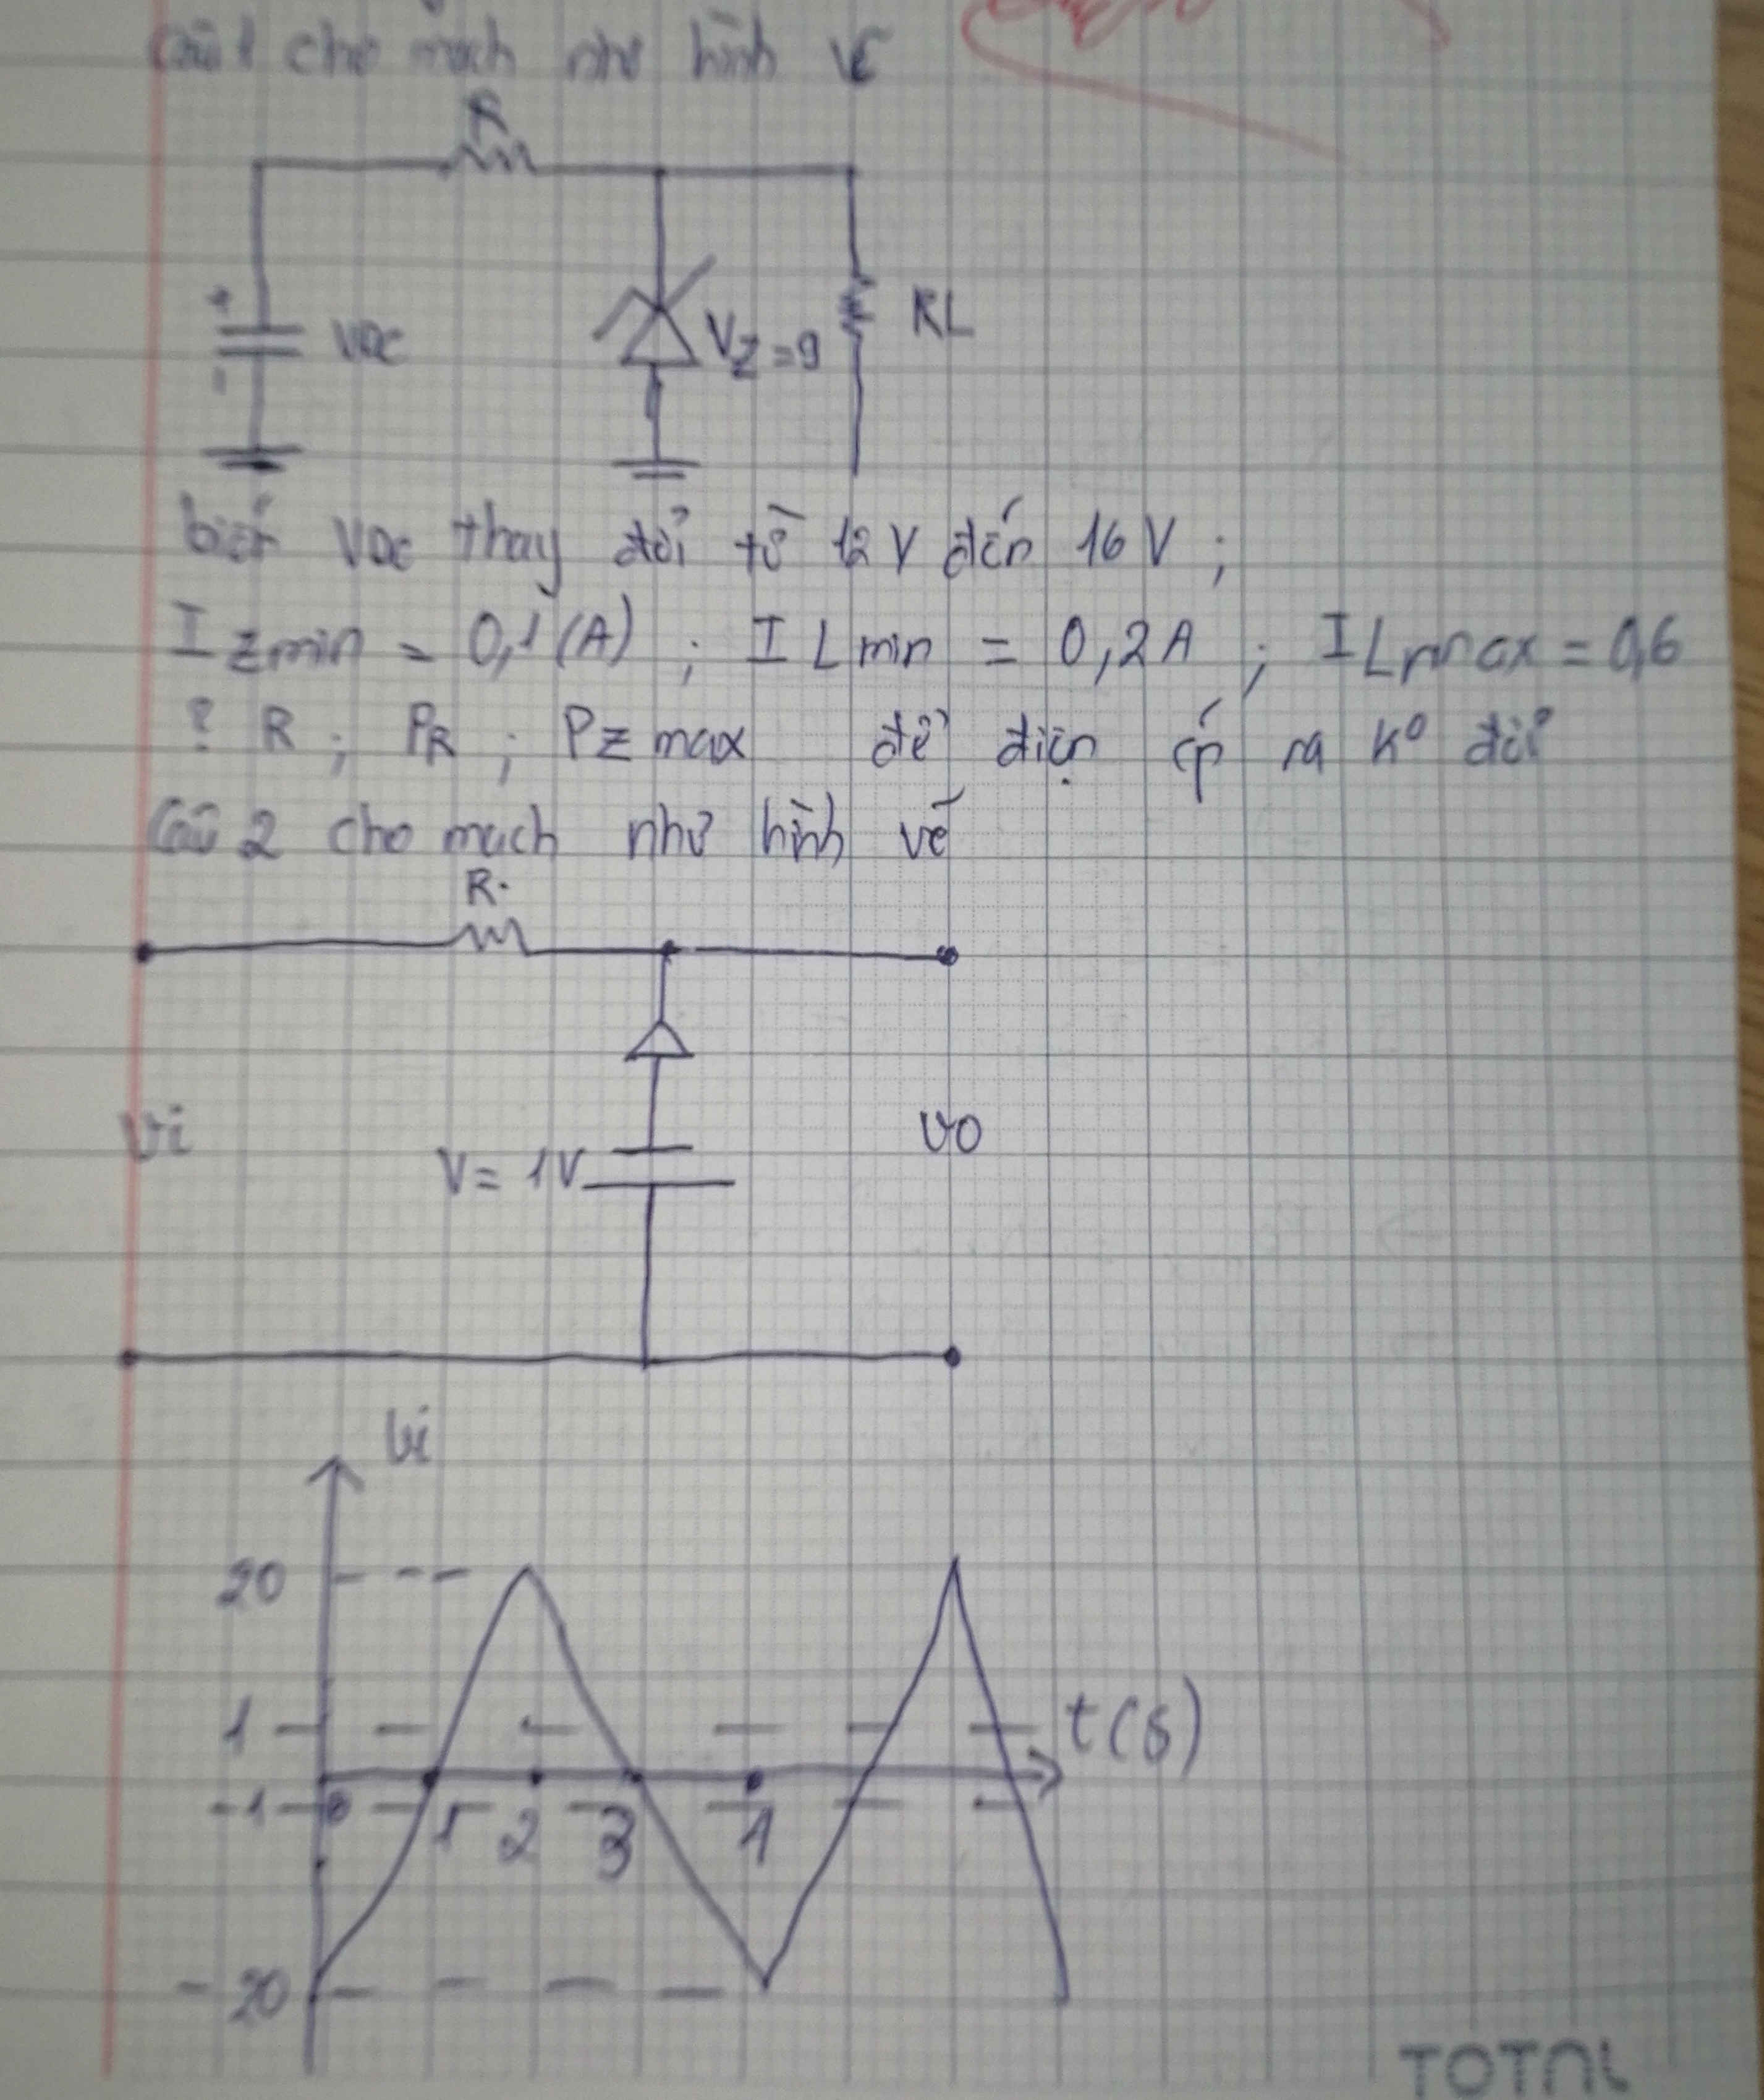 Câu 1 cho mạch như hình vẽ
R
+
VDC
-
VZ = 9
RL
biết VDC thay đổi từ 12 V đến 16 V ;
I zmin = 0,1 (A) ; I L min = 0,2 A ; I L max = 0,6
? R ; PR ; PZ max để điện áp ra k° đổi
Câu 2 cho mạch như hình vẽ
R.
vi
V = 1V
vo
vi
20
1
t(s)
-1
0
1
2
3
4
-20
TOTAL